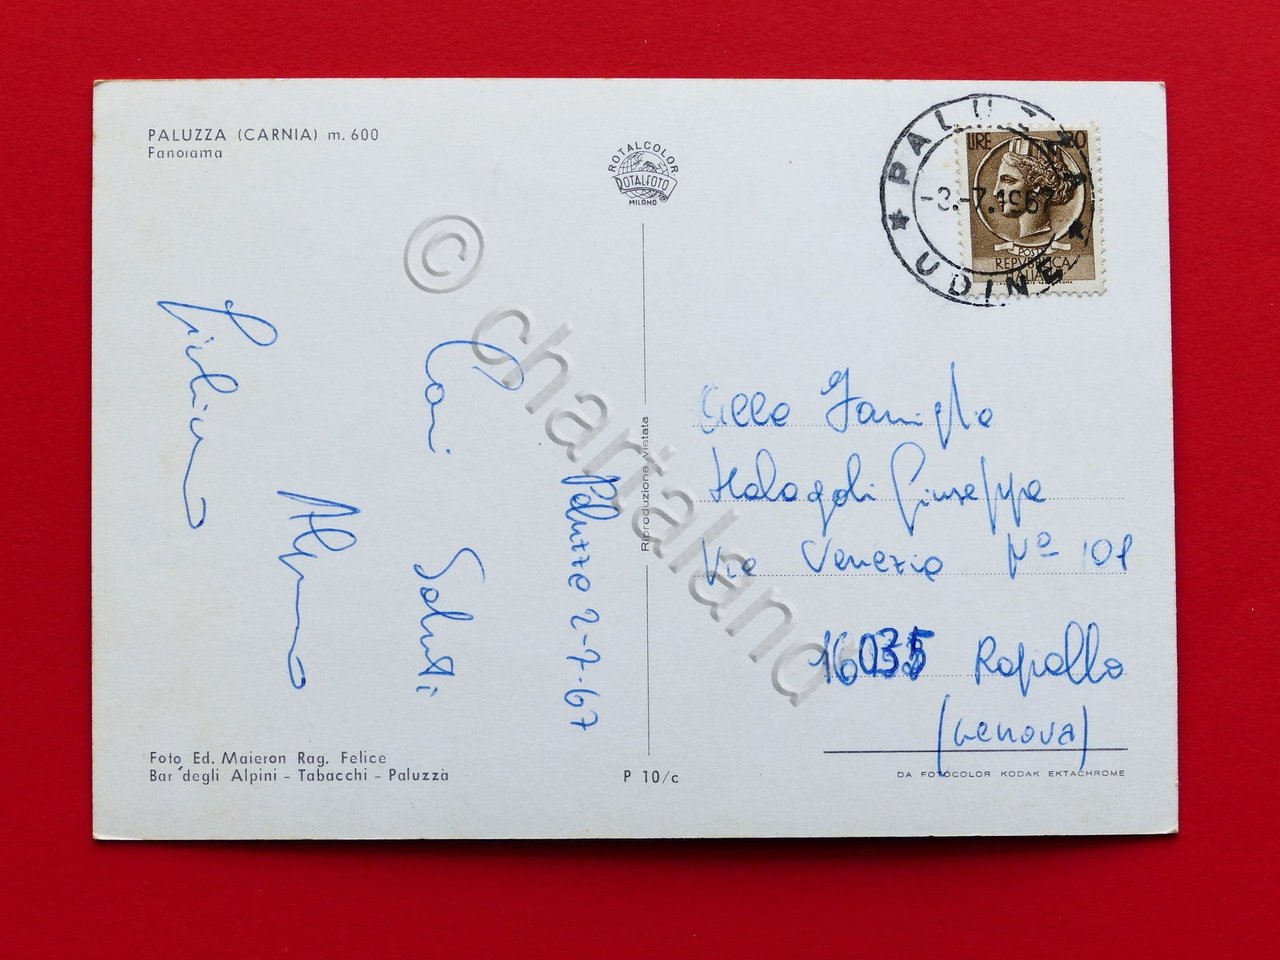 PALUZZA (CARNIA) m. 600
Panorama
ROTALCOLOR
ROTALFOTO
MILANO
PALUZZA
-3.-7.1967
* UDINE *
LIRE 20
POSTE
REPVBBLICA
ITALIANA
© chartaland
Cari Saluti
Paluzza 2-7-67
Riproduzione vietata
Alla Famiglia
Malagoli Giuseppe
Via Venezia Nº 101
16035 Rapallo
(Genova)
Foto Ed. Maieron Rag. Felice
Bar degli Alpini - Tabacchi - Paluzza
P 10/c
DA FOTOCOLOR KODAK EKTACHROME